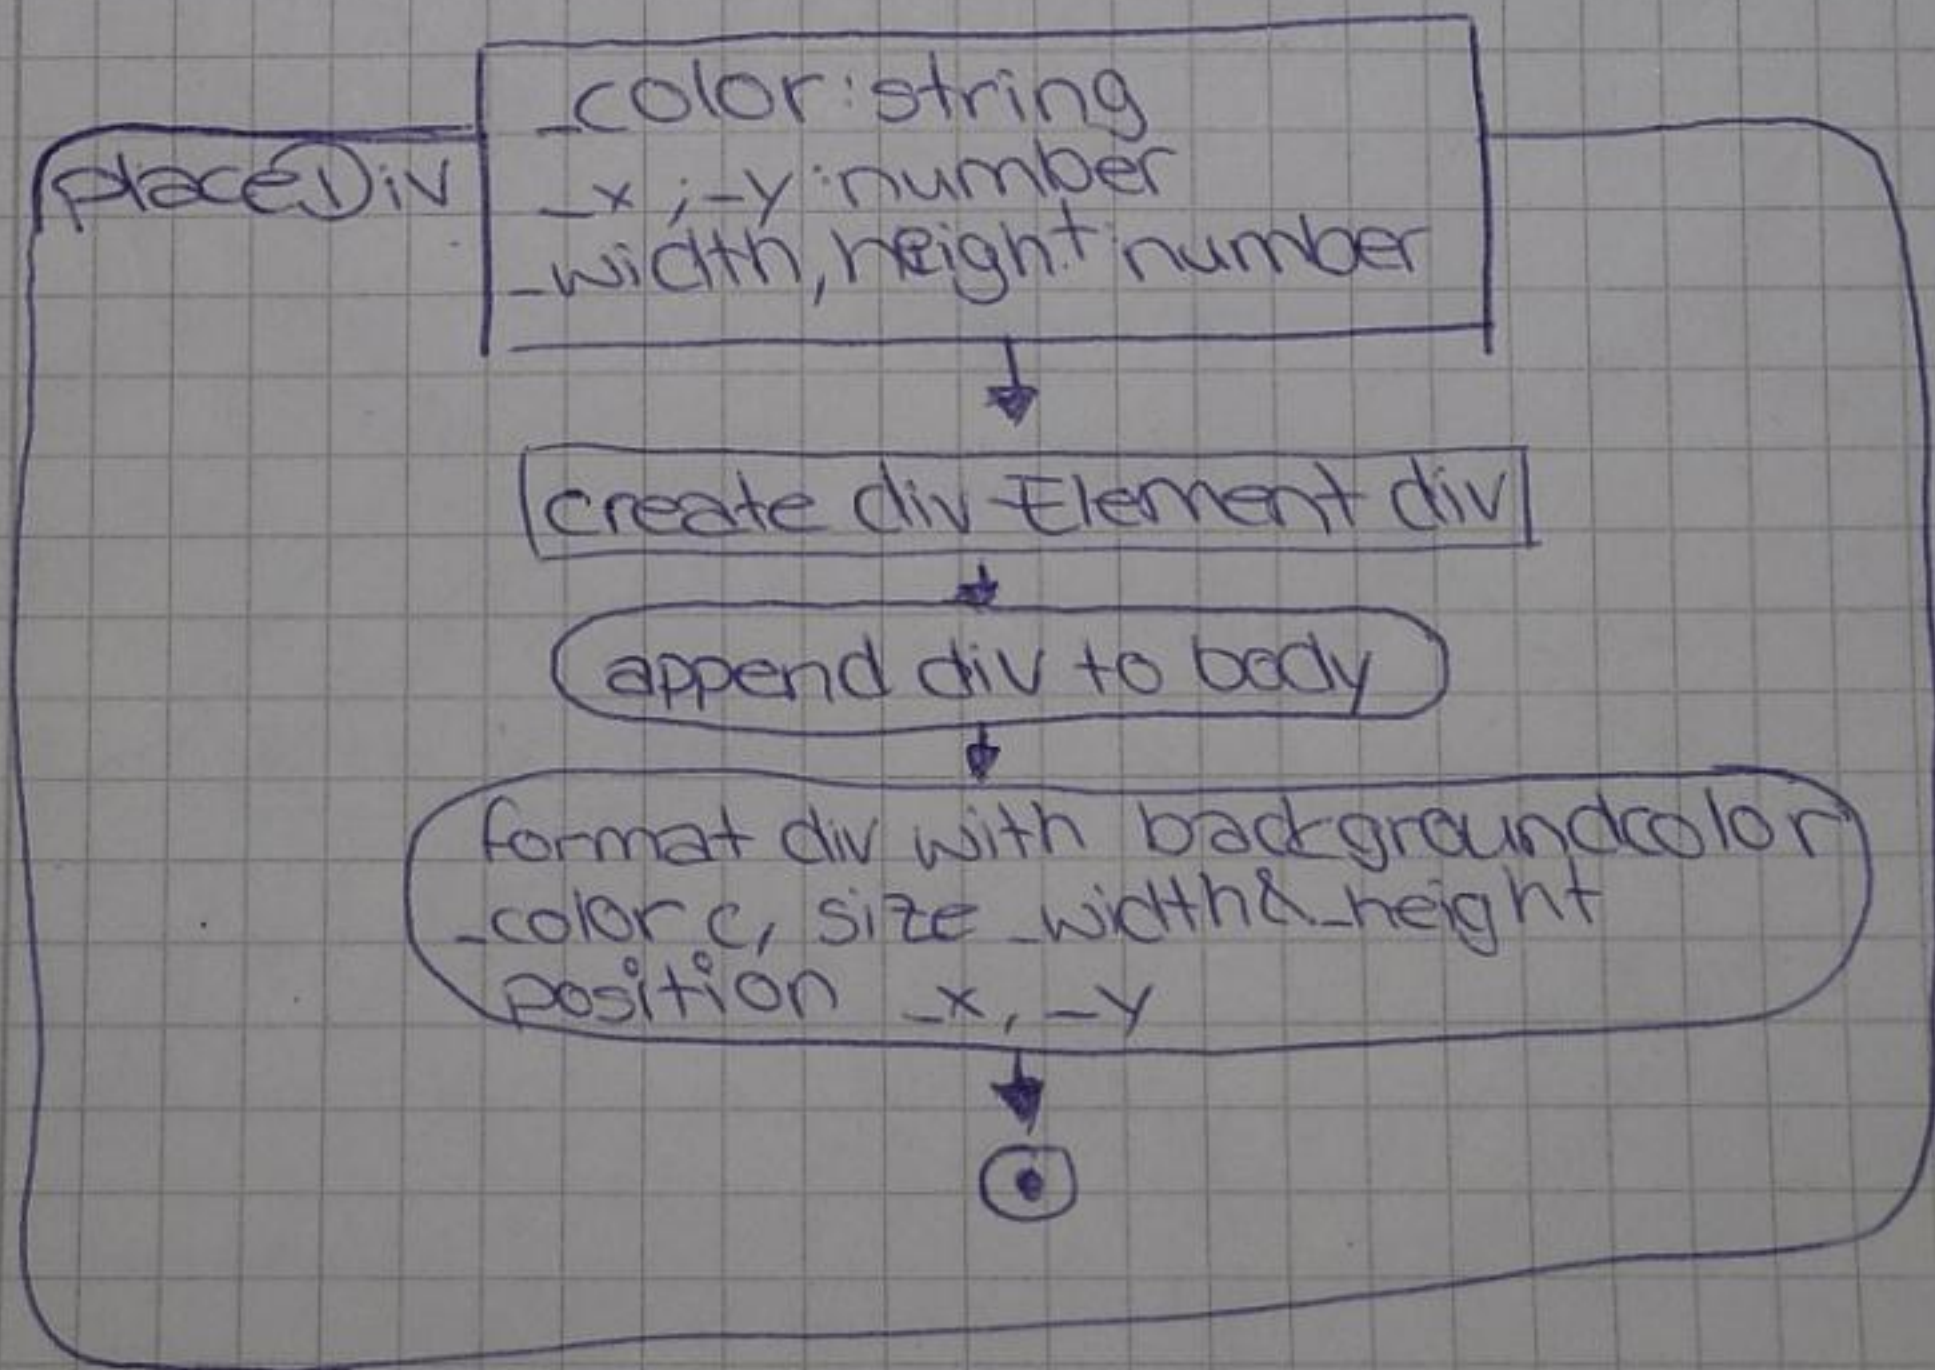 placeDiv
_color: string
_x ; _y : number
_width, height : number
create div Element div
append div to body
format div with backgroundcolor
_color c, size _width & _height
position _x, _y